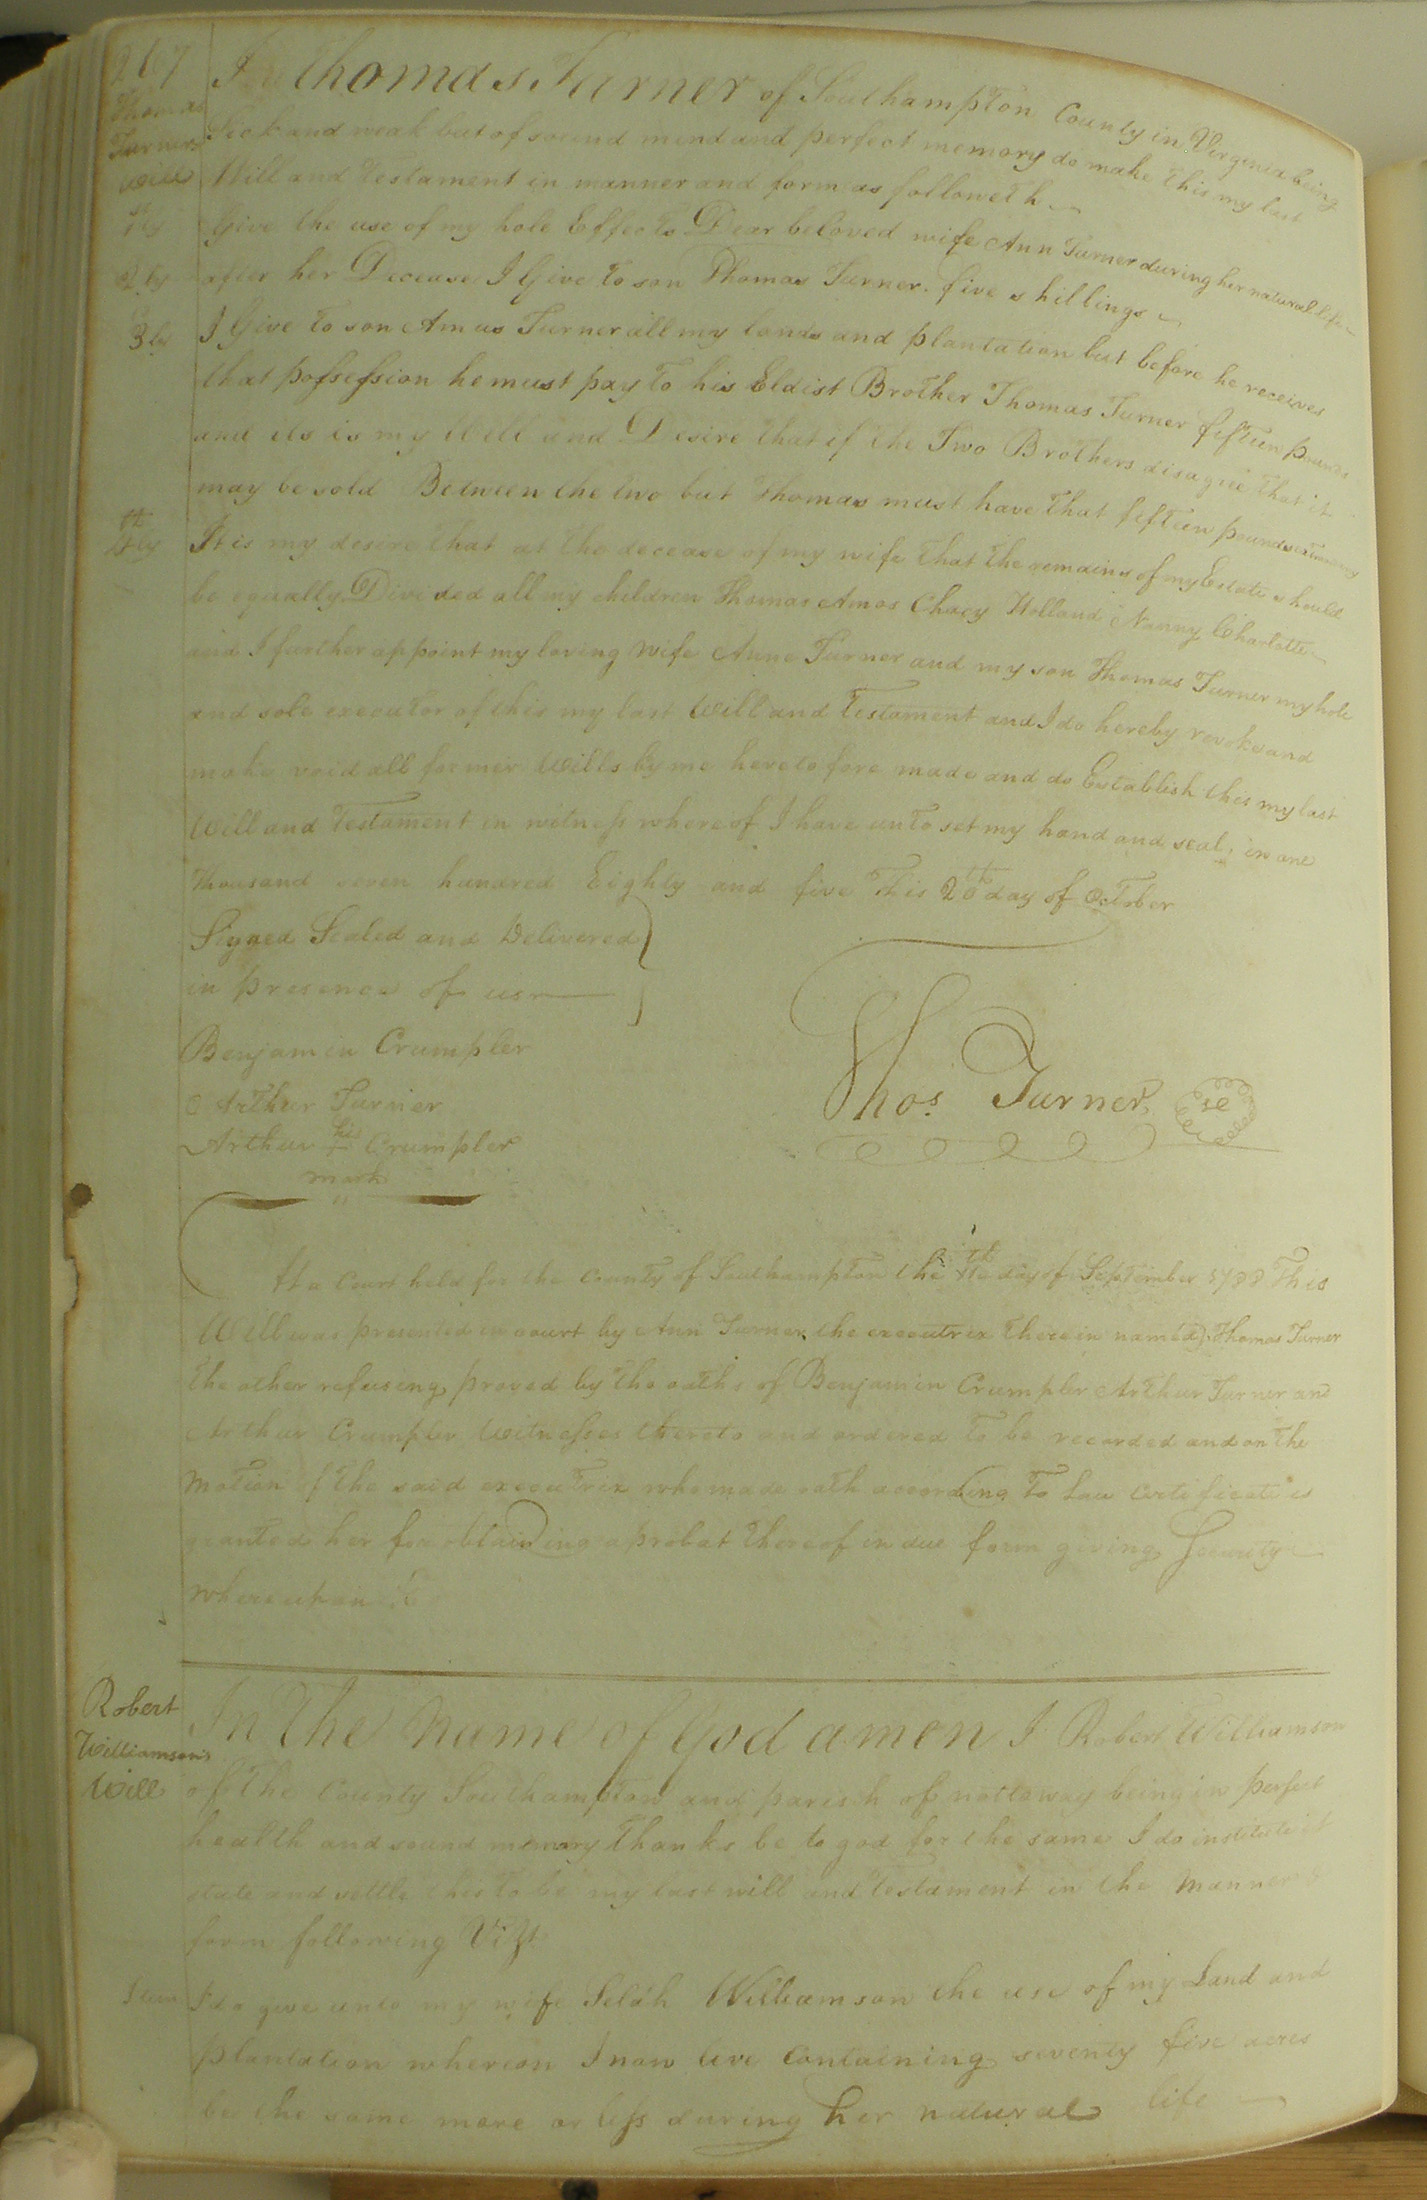 267
Thomas
Turners
will
I Thomas Turner of Southampton County in Virginia being
Sick and weak but of sound mind and perfect memory do make this my last
Will and Testament in manner and form as followeth
1st ly Give the use of my hole Effects Dear beloved wife Ann Turner during her natural life
2 ly after her Decease I Give to son Thomas Turner five shillings
3 ly I Give to son Amus Turner all my lands and plantation but before he receives
that possession he must pay to his Eldist Brother Thomas Turner fifteen pounds
and its is my Will and Desire that if the Two Brothers disagree that it
may be sold Between the two but Thomas must have that fifteen pounds
4th ly It is my desire that at the decease of my wife that the remains of my Estate should
be equally Divided all my children Thomas Amos Chacy Holland Nanny Charlotte
and I further appoint my loving wife Anne Turner and my son Thomas Turner my hole
and sole executor of this my last Will and Testament and I do hereby revoke and
make void all former Wills by me heretofore made and do Establish this my last
Will and Testament in witness whereof I have unto set my hand and seal in one
Thousand seven hundred Eighty and five This 20th day of October
Signed Sealed and Delivered
in presence of us
Benjamin Crumpler
Arthur Turner
Arthur his Crumpler
mark
Thos. Turner se
At a Court held for the County of Southampton the 11th day of September 1788 This
Will was presented in court by Ann Turner the executrix therein named Thomas Turner
the other refusing proved by the oaths of Benjamin Crumpler Arthur Turner and
Arthur Crumpler Witnesses thereto and ordered To be recorded and on the
Motion of the said executrix who made oath according To Law Certificate is
granted her for obtaining a probat thereof in due form giving Security
whereupon &c
Robert
Williamson's
Will
In The Name of God amen I Robert Williamson
of The County Southampton and parish of nottoway being in perfect
health and sound memory Thanks be to god for the same I do institute
state and settle this to be my last will and Testament in the Manner &
form following Vizt
Item I do give unto my wife Selah Williamson the use of my Land and
plantation whereon I now live Containing seventy five acres
be the same more or less during her natural life